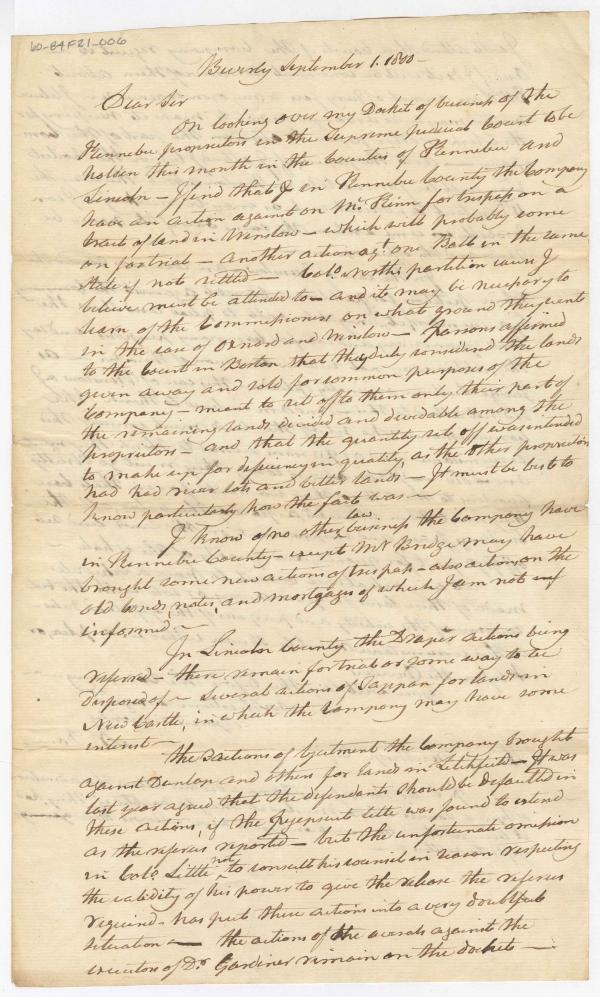 60-84F21-006
Beverly September 1. 1800 -
Dear Sir
On looking over my Docket of business of the
Kennebec proprietors in the Supreme Judicial Court to be
holden this month in the Counties of Kennebec and
Lincoln - I find that in Kennebec County the Company
have an action against on Mr. Penn for trespass on a
tract of land in Winslow - which will probably come
on for trial - another action agt. one Ball in the same
State if not settled - Colo. North's partition cause I
believe must be attended to - and it may be necessary to
learn of the Commissioners on what ground they went
in the case of Oxnard and Winslow - Parsons affirmed
to the Court in Boston, that they duly considered the lands
given away and sold for common purposes of the
Company - meant to set off to them only their part of
the remaining lands divided and dividable among the
proprietors - and that the quantity set off was intended
to make up for deficiency in quality, as the other proprietors
had had river lots and better lands - It must be best to
know particularly how the fact was -
I know of no other law business the Company have
in Kennebec County - except Mr Bridge may have
brought some new actions of trespass - also actions on the
old bonds, notes, and mortgages of which I am not
informed -
In Lincoln County the Draper actions being
referred - there remain for trial or some way to be
disposed of - several actions of Tappan for lands in
New Castle, in which the Company may have some
interest -
The actions of Ejectment the Company brought
against Dunlap and others for lands in Litchfield - It was
last year agreed that the defendants should be defaulted in
these actions, if the Plymouth title was found to extend
as the referees reported - but the unfortunate omission
in Colo. Little not to consult his counsel in season respecting
the validity of his power to give the release the referees
required - has put these actions into a very doubtful
situation - the actions of the against the
executors of Dr. Gardiner remain on the dockets -